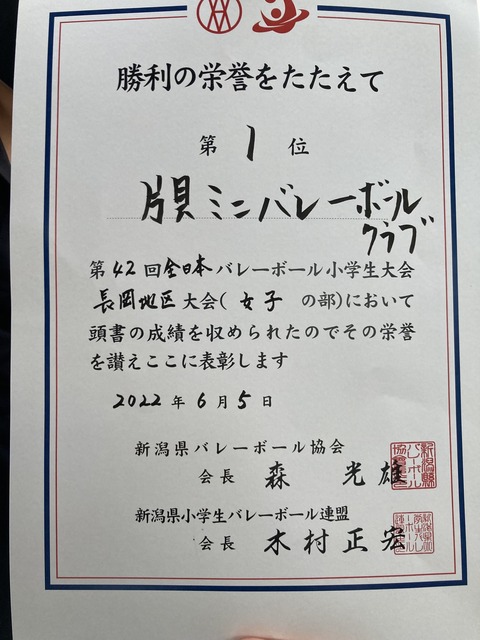 勝利の栄誉をたたえて
第 1 位
片貝ミニバレーボール
クラブ
第42回全日本バレーボール小学生大会
長岡地区大会(女子の部)において
頭書の成績を収められたのでその栄誉
を讃えここに表彰します
2022年6月5日
新潟県バレーボール協会
会長 森 光雄
新潟県小学生バレーボール連盟
会長 木村正宏